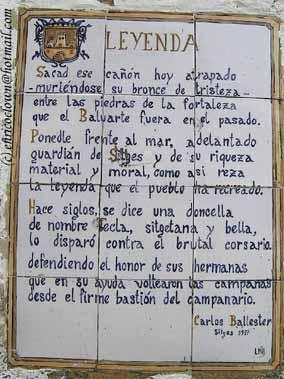 LEYENDA
Sacad ese cañón hoy atrapado
-muriéndose su bronce de tristeza-
entre las piedras de la fortaleza
que el Baluarte fuera en el pasado.
Ponedle frente al mar, adelantado
guardián de Sitges y de su riqueza
material y moral, como asi reza
la leyenda que el pueblo ha recreado.
Hace siglos, se dice una doncella
de nombre Tecla, sitgetana y bella,
lo disparó contra el brutal corsario.
defendiendo el honor de sus hermanas
que en su ayuda voltearon las campanas
desde el firme bastión del campanario.
Carlos Ballester
Sitges